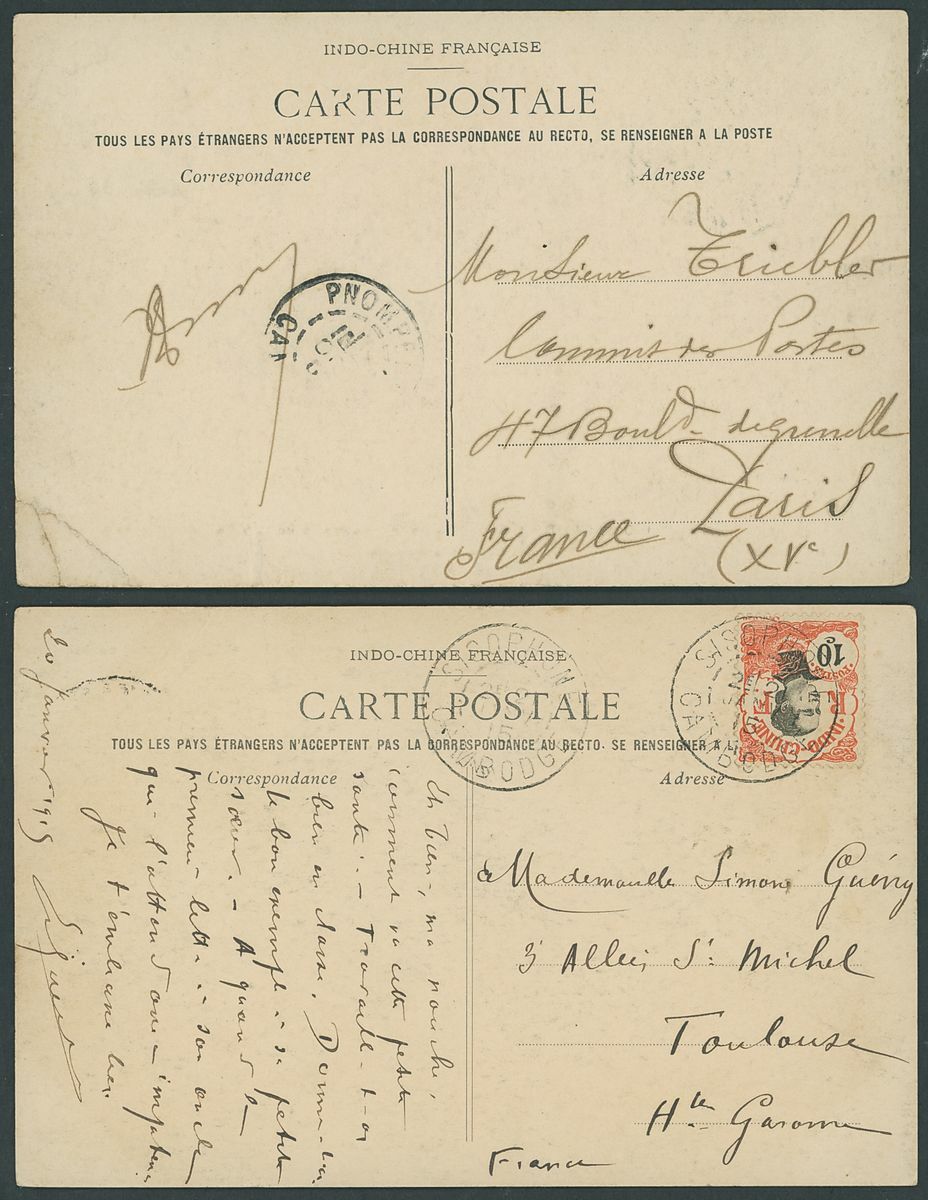 INDO-CHINE FRANÇAISE
CARTE POSTALE
TOUS LES PAYS ÉTRANGERS N'ACCEPTENT PAS LA CORRESPONDANCE AU RECTO, SE RENSEIGNER A LA POSTE
Correspondance
Adresse
PNOMPE
CAM
Monsieur Triebler
Commis des Postes
47 Bould de grenelle
Paris
France
(XVe)
INDO-CHINE FRANÇAISE
CARTE POSTALE
TOUS LES PAYS ÉTRANGERS N'ACCEPTENT PAS LA CORRESPONDANCE AU RECTO. SE RENSEIGNER A L
Correspondance
Adresse
SISOPHON
CAMBODGE
SISOPHON
CAMBODGE
10
INDO-CHINE
RF
Eh bien, ma
comment va cette petite
santé. - Travaille-t-on
bien en classe. Donne-t-on
le bon exemple à sa petite
sœur. - A quand la
première lettre à son oncle
qui l'attend avec impatience
Je t'embrasse bien
20 Janvier 1915
Mademoiselle Simone Guéry
3 Allées St Michel
Toulouse
Hte Garonne
France